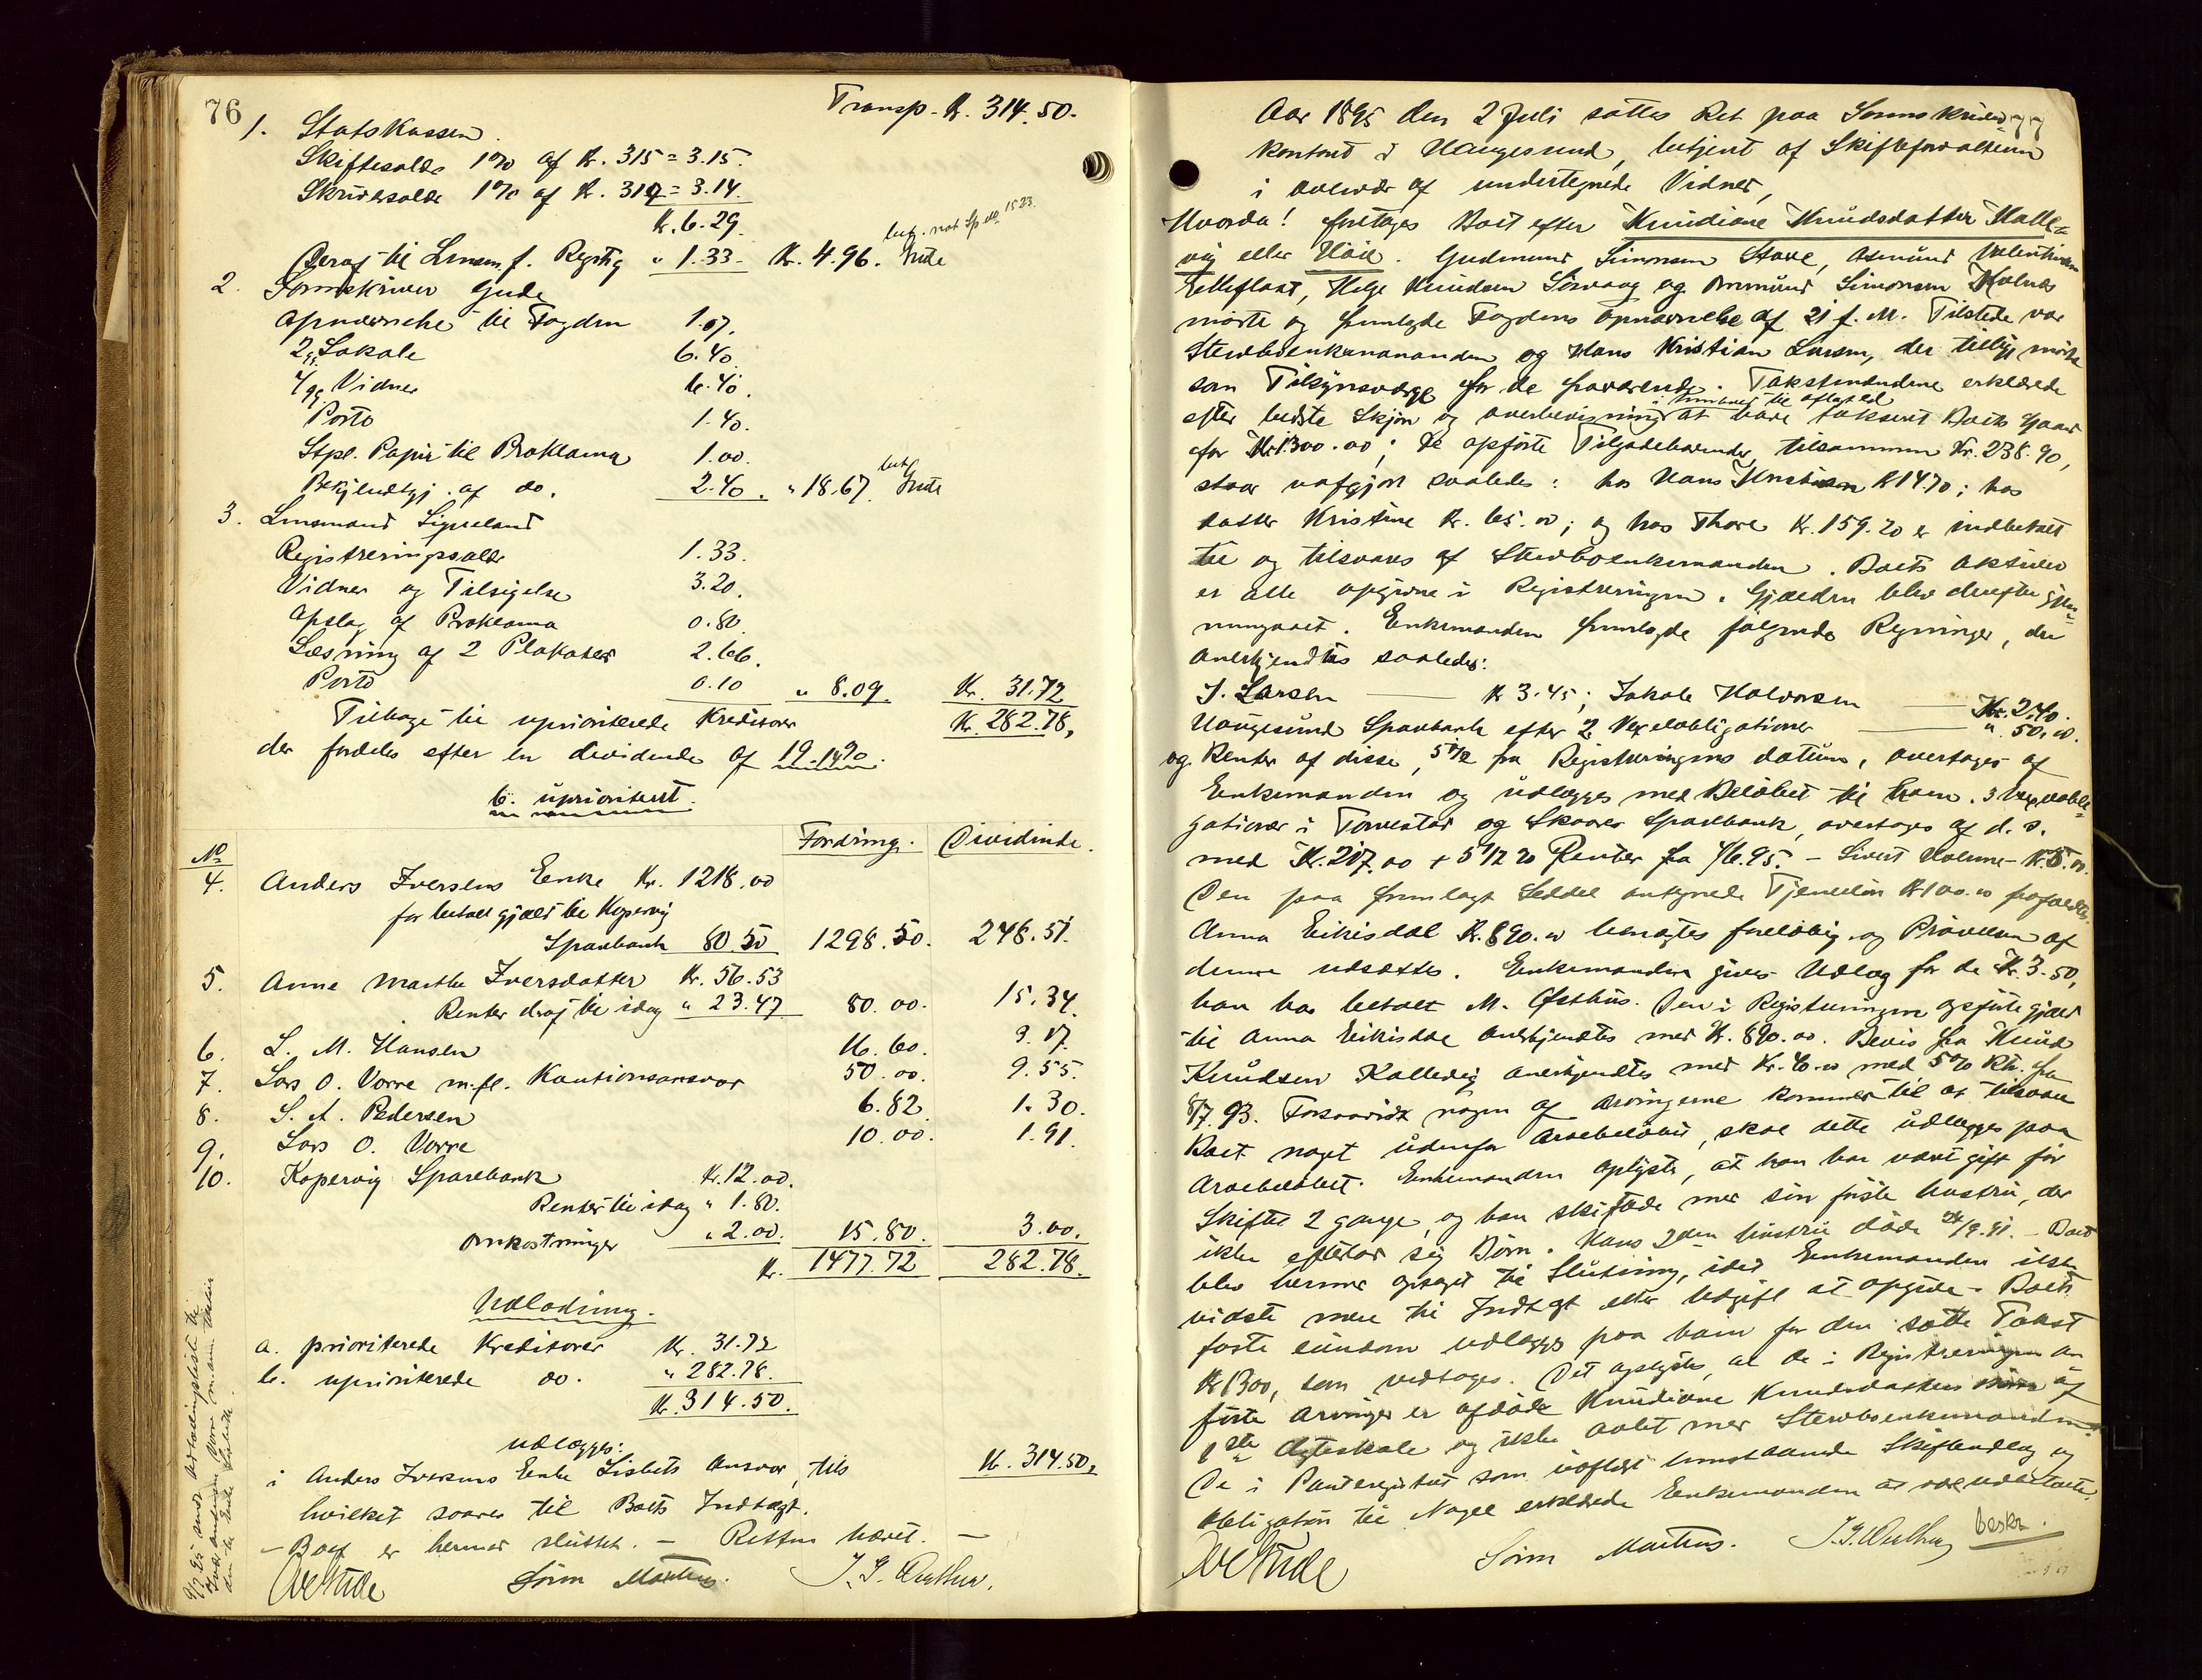 76
Transp. Kr. 314.50.
1. Statskassen.
Skiftesalær 1% af Kr. 315 = 3.15.
Skriversalær 1% af Kr. 314 = 3.14.
Kr. 6.29.
bet. not Sp. No 1523.
Deraf til Lensm. f. Regstrg " 1.33. Kr. 4.96. Gude
2. Sorenskriver Gude
Opnævnelse til Fogden 1.07.
2 gg. Lokale 6.40
4 gg. Vidner 6.40.
Porto 1.40.
Stpl. Papir til Proklama 1.00.
Bekjendtgj. af do. 2.40. " 18.67. bet. Gude
3. Lensmand Signeland
Registreringssalær 1.33.
Vidner og Tilsigelse 3.20.
Opslag af Proklama 0.80.
Læsning af 2 Plakater 2.66.
Porto 0.10 " 8.09. Kr. 31.72
Tilbage til uprioriterede Kreditorer Kr. 282.78,
der fordeles efter en dividende af 19.14%.
b. uprioritert.
No Fordring. Dividende.
4. Anders Iversens Enke Kr. 1218.00
for betalt gjæld til Kopervig
Sparebank 80.50 1298.50. 248.51.
5. Anne Marthe Iversdatter Kr. 56.53
Renter deraf til idag " 23.47 80.00. 15.34.
6. L. M. Hansen 16.60. 3.17.
7. Lars O. Vorre m.fl. Kautionsansvar 50.00. 9.55.
8. S. A. Pedersen 6.82. 1.30.
9. Lars O. Vorre 10.00. 1.91.
10. Kopervig Sparebank Kr. 12.00.
Renter til idag " 1.80.
Omkostninger " 2.00. 15.80. 3.00.
Kr. 1477.72 282.78.
Udlodning.
a. prioriterede Kreditorer Kr. 31.72
b. uprioriterede do. " 282.78.
Kr. 314.50.
udlægges:
i Anders Iversens Enke Lisbets Ansvar, tils Kr. 314.50,
hvilket svarer til Boets Indtægt.
– Boet er hermed sluttet. – Retten hævet. –
Gude Sørm Martens. J. G.
77
Aar 1895 den 2 Juli sattes Ret paa Sorenskriver
kontoret i Haugesund, betjent af Skifteforvalteren
i overvær af undertegnede Vidner,
Hvorda! foretoges Boet efter Knudiane Knudsdatter Kalle-
vig eller Høie. Gudmund Simonsen Stave, Asmund Valentinsen
, Helge Knudsen og Ommund Simonsen Kolnes
mødte og fremlagde Fogdens Opnævnelse af 21 f. M. Tilstede var
Sterbboenkemanden og Hans Kristian Larsen, der tillige mødte
som Tilsynsværge for de fraværende. Takstmændene erklærede
efter bedste Skjøn og overbevisning i henhold til aflagt ed at have takseret Boets Gaard
for Kr 1300.00; De opførte Tilgodehavender, tilsammen Kr. 238.90,
staar uafgjort saaledes: hos Hans Kristian Kr 14.70; hos
datter Kristine Kr. 65.00; og hos Thore Kr. 159.20 er indbetalt
til og tilsvares af Sterbboenkemanden. Boets aktiver
er alle opgivne i Registreringen. Gjælden blev derefter gjen-
nemgaaet. Enkemanden fremlagde følgende Regninger, der
anerkjendtes saaledes:
J. Larsen — Kr 3.45; Jakob Halvorsen — Kr. 2.40.
Haugesund Sparebank efter 2 Vexelobligationer — " 50.00.
og Renter af disse, 5½ % fra Registreringens datum, overtages af
Enkemanden og udlægges med Beløbet til ham. 3 Vexelobli-
gationer i Torvestad og Skaare Sparebank, overtages af d. s.
med Kr. 207.00 + 5½ % Renter fra 4/6.95. – Sivert – Kr. 5.00.
Den paa fremlagt Seddel antegnede Tjenerløn Kr 100.00 frafaldtes.
Anna Eikisdal Kr. 890.00 benægtes foreløbig og Prøvelsen af
denne udsættes. Enkemanden gives Udlæg for de Kr. 3.50,
han har betalt M. Østhus. Den i Registreringen opførte gjæld
til Anna Eikisdal anerkjendtes med Kr. 890.00. Bevis fra Knud
Knudsen Kallevig anerkjendtes med Kr. 40.00 med 5% Rtr. fra
8/7.93. Forsaavidt nogen af Arvingerne kommer til at tilsvare
Boet noget udenfor Arvebeløbet, skal dette udlægges paa
Arvebeløbet. Enkemanden oplyste, at han har været gift før
Skiftet 2 gange, og han skiftede med sin første hustru, der
ikke efterlod sig Børn. Hans 2den hustru døde 24/9.91. – Boet
blev hermed optaget til Slutning, idet Enkemanden ikke
vidste mere til Indtægt eller Udgift at opgive. – Boets
faste eiendom udlægges paa ham for den satte Takst
Kr 1300, som vedtages. Det oplystes, at de i Registreringen an
førte arvinger er afdøde Knudiane Knudsdatters af
1ste Ægteskab og ikke avlet med Sterbboenkemanden
De i Panteregistret som uaflyst henstaaende Skifteudlæg og
Obligation til Nagel erklærede Enkemanden at være udbetalte.
Gude Sørm Martens. J. G. beskr.